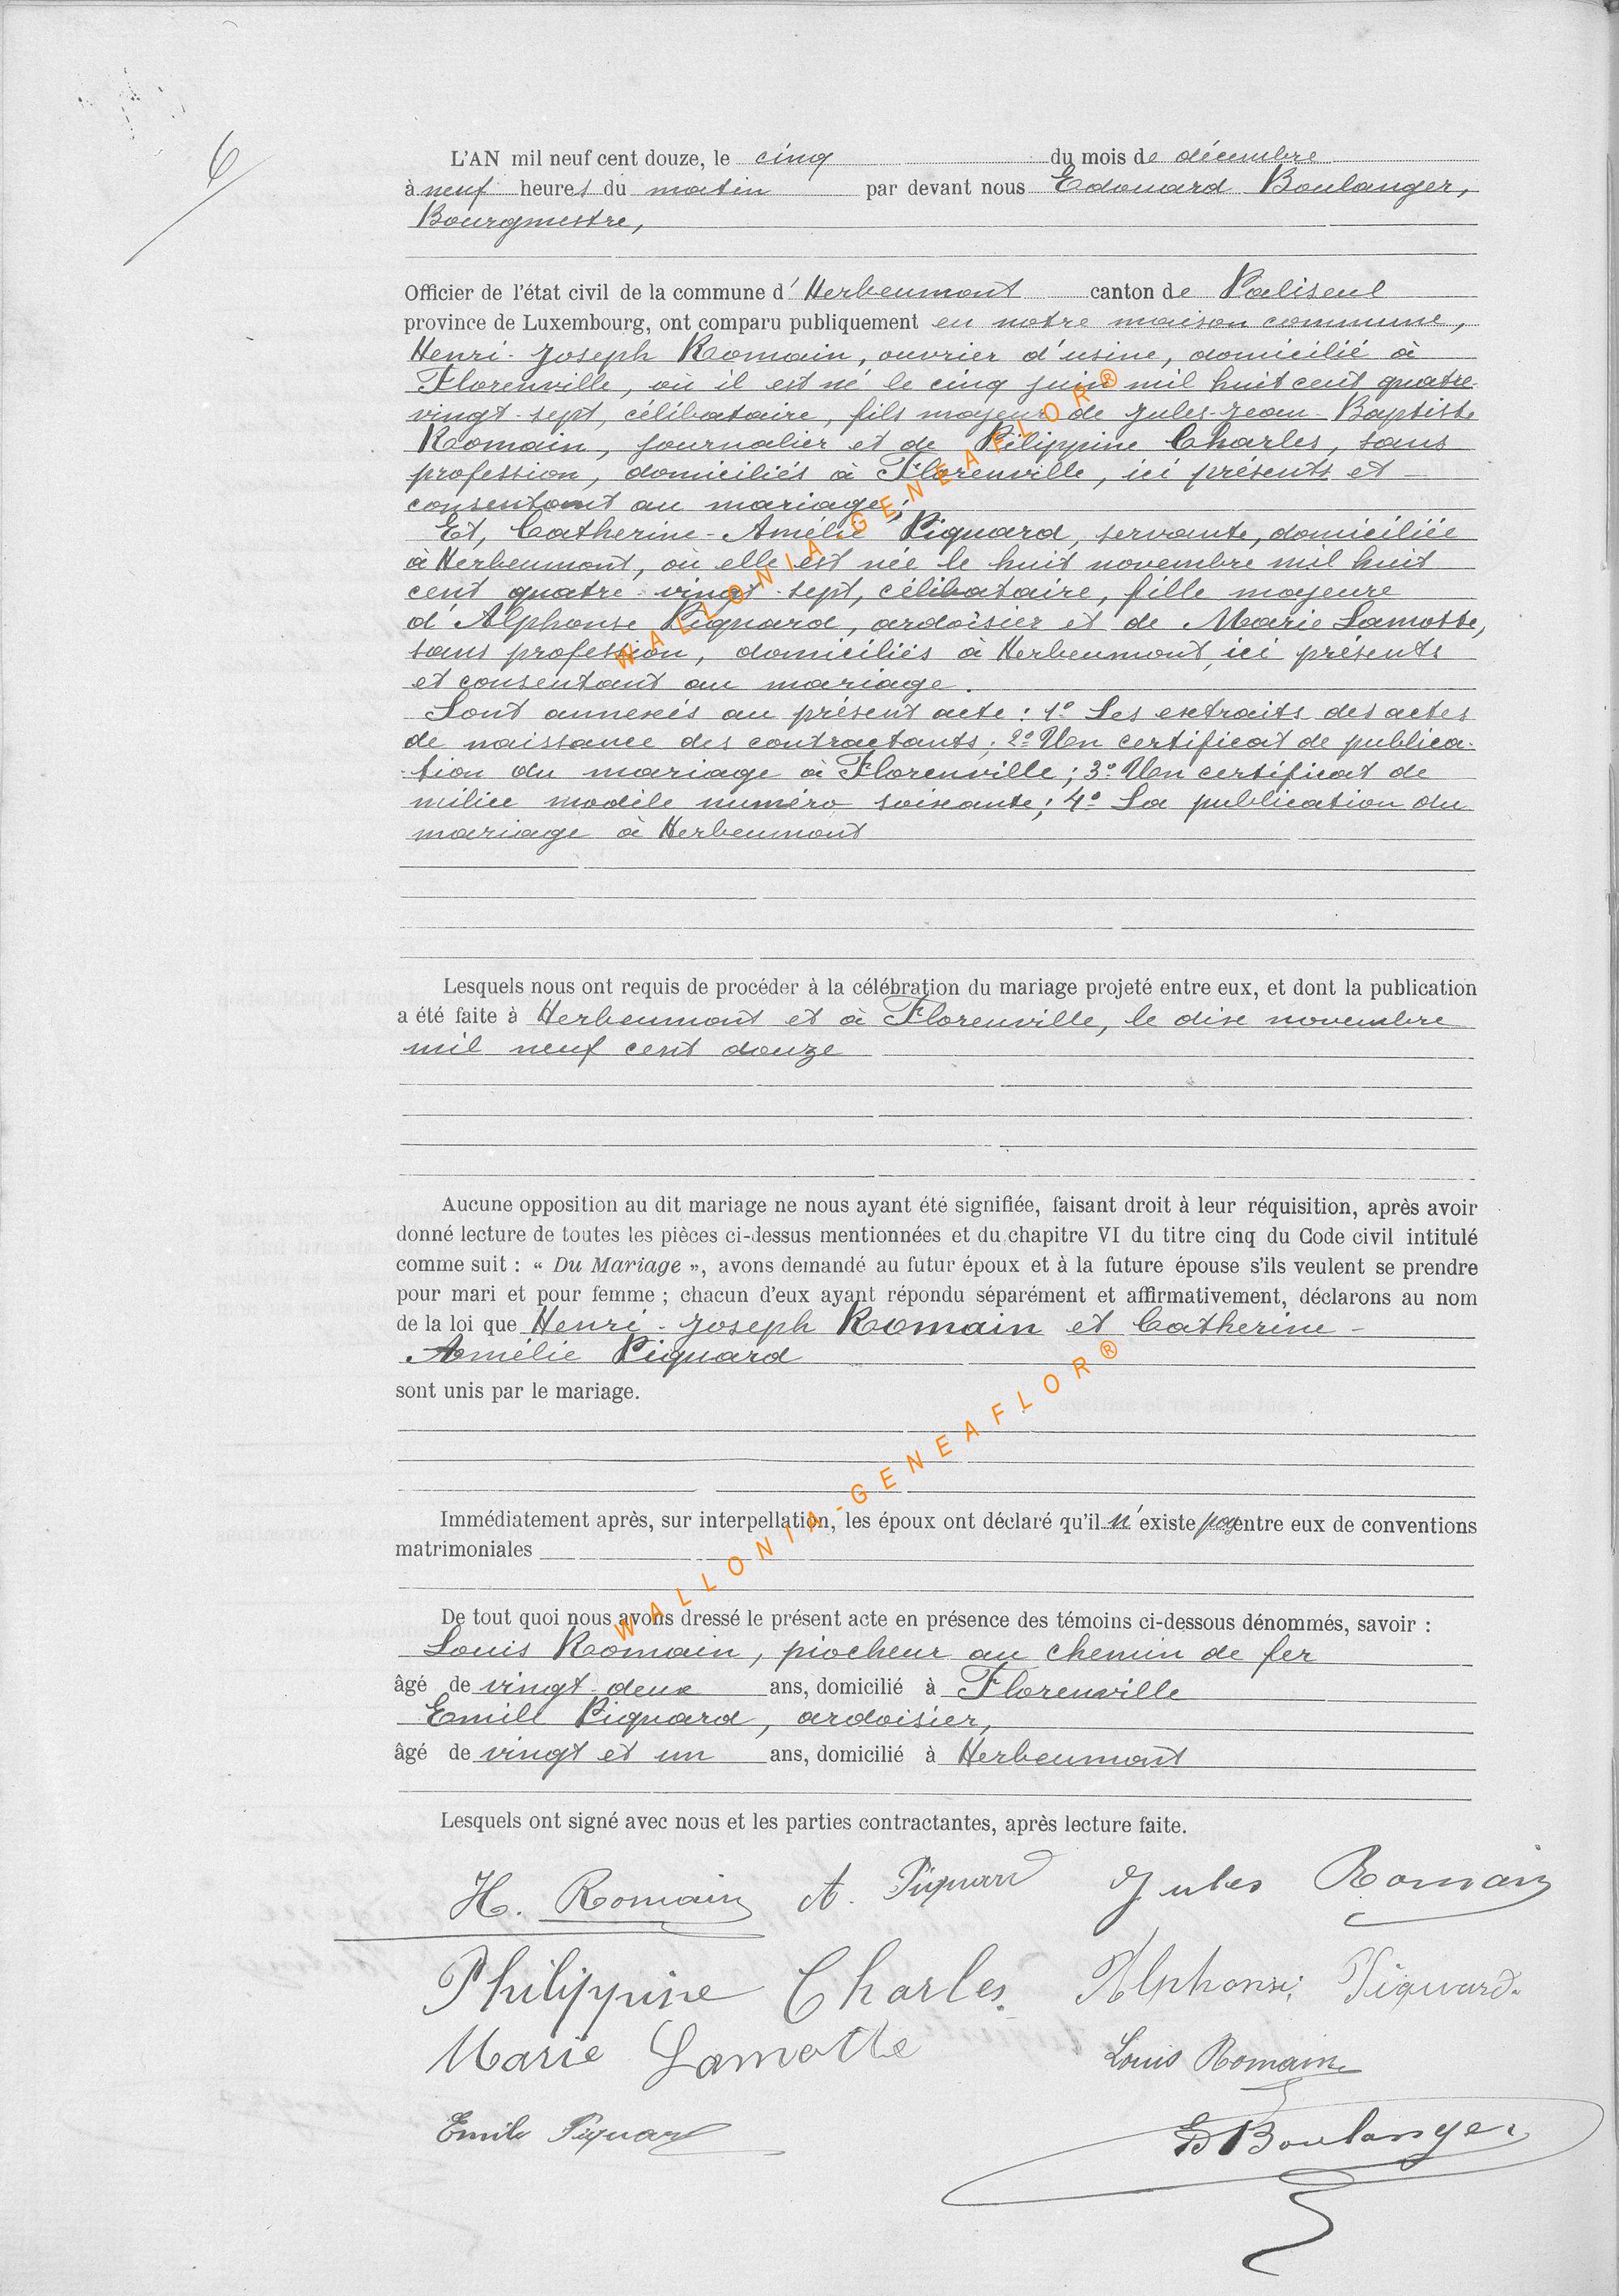 6
L'AN mil neuf cent douze, le cinq du mois de décembre
à neuf heures du matin par devant nous Edouard Boulanger,
Bourgmestre,
Officier de l'état civil de la commune d'Herbeumont canton de Paliseul
province de Luxembourg, ont comparu publiquement en notre maison commune,
Henri-Joseph Romain, ouvrier d'usine, domicilié à
Florenville, où il est né le cinq juin mil huit cent quatre-
vingt-sept, célibataire, fils majeur de Jules-Jean-Baptiste
Romain, journalier et de Pilippine Charles, sans
profession, domiciliés à Florenville, ici présents et
consentant au mariage;
Et, Catherine-Amélie Piquard, servante, domiciliée
à Herbeumont, où elle est née le huit novembre mil huit
cent quatre-vingt-sept, célibataire, fille majeure
d'Alphonse Piquard, ardoisier et de Marie Lamotte,
sans profession, domiciliés à Herbeumont, ici présents
et consentant au mariage.
Sont annexés au présent acte : 1° Les extraits des actes
de naissance des contractants; 2° Un certificat de publica-
-tion du mariage à Florenville; 3° Un certificat de
milice modèle numéro soixante; 4° La publication du
mariage à Herbeumont
WALLONIA-GENEAFLOR®
Lesquels nous ont requis de procéder à la célébration du mariage projeté entre eux, et dont la publication
a été faite à Herbeumont et à Florenville, le dix novembre
mil neuf cent douze
Aucune opposition au dit mariage ne nous ayant été signifiée, faisant droit à leur réquisition, après avoir
donné lecture de toutes les pièces ci-dessus mentionnées et du chapitre VI du titre cinq du Code civil intitulé
comme suit : « Du Mariage », avons demandé au futur époux et à la future épouse s'ils veulent se prendre
pour mari et pour femme ; chacun d'eux ayant répondu séparément et affirmativement, déclarons au nom
de la loi que Henri-Joseph Romain et Catherine-
Amélie Piquard
sont unis par le mariage.
WALLONIA-GENEAFLOR®
Immédiatement après, sur interpellation, les époux ont déclaré qu'il n'existe pas entre eux de conventions
matrimoniales
De tout quoi nous avons dressé le présent acte en présence des témoins ci-dessous dénommés, savoir :
Louis Romain, piocheur au chemin de fer
âgé de vingt-deux ans, domicilié à Florenville
Emile Piquard, ardoisier,
âgé de vingt et un ans, domicilié à Herbeumont
Lesquels ont signé avec nous et les parties contractantes, après lecture faite.
H. Romain A. Piquard Jules Romain
Philippine Charles Alphonse Piquard.
Marie Lamotte Louis Romain
Emile Piquard E Boulanger